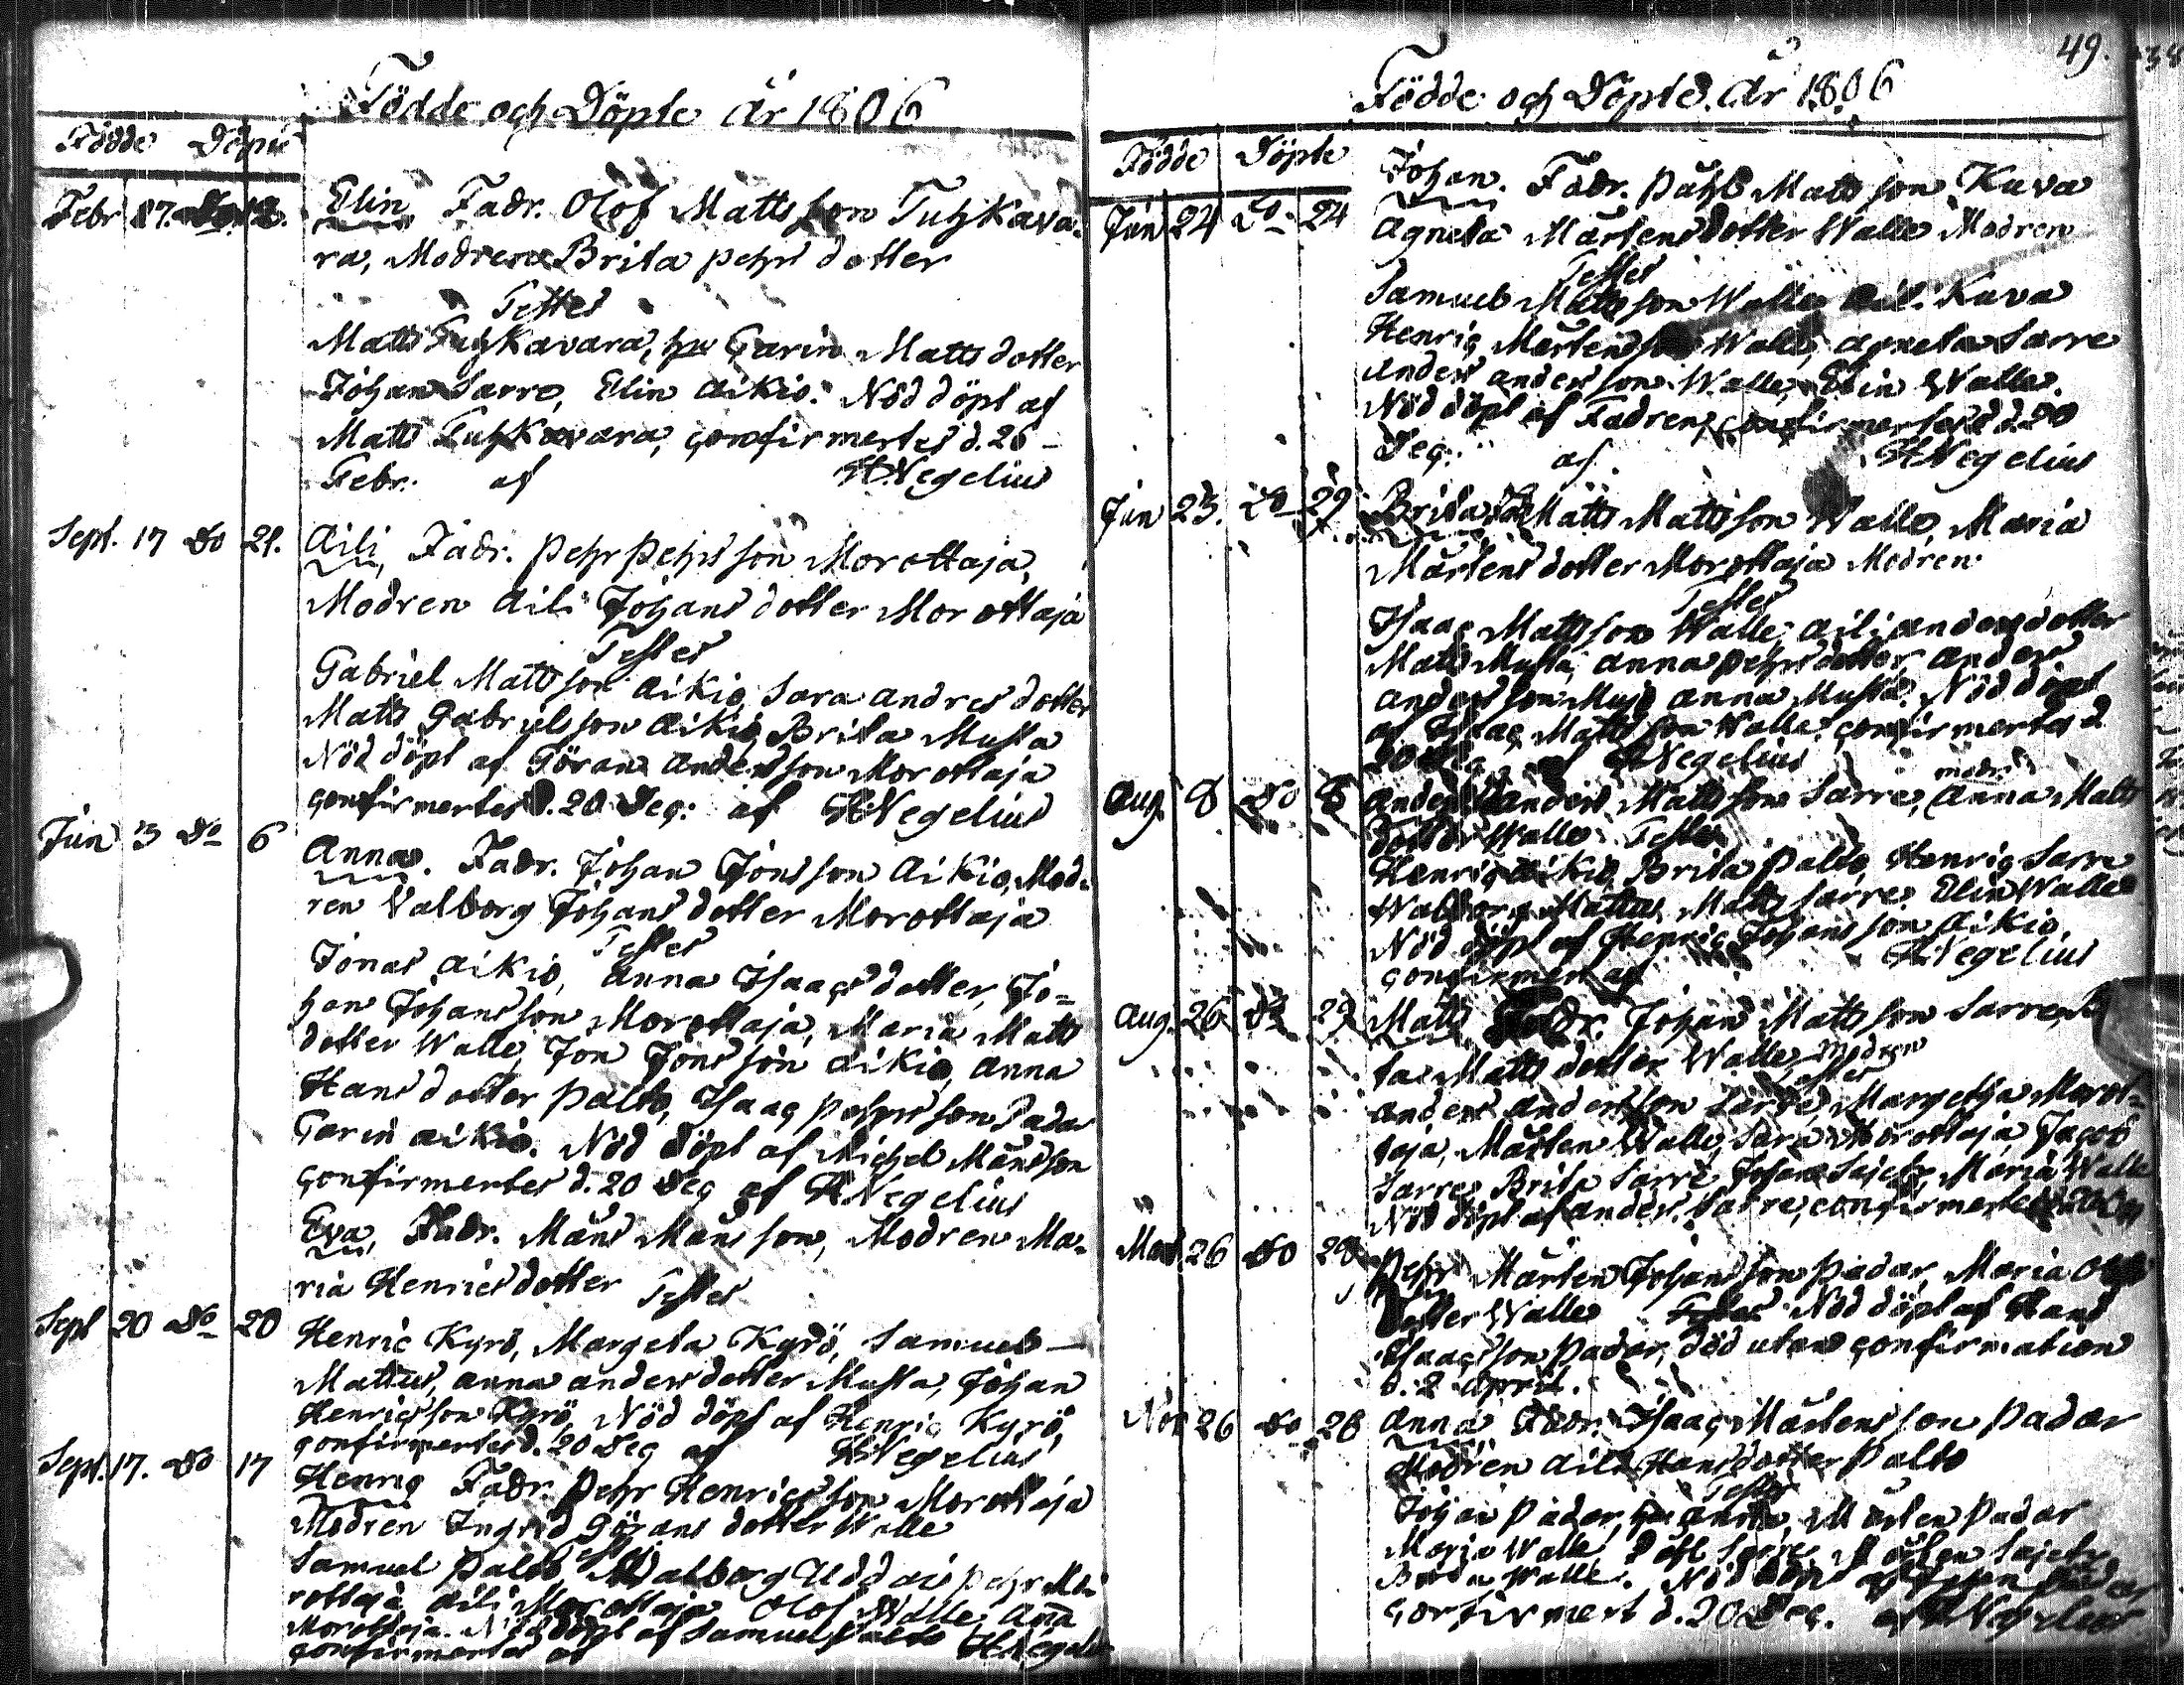 Födde och Döpte År 1806
Födde Döpte
Febr 17. Do
Elin Fadr. Olof Matts son Tuhkava
ra, Modren Brita pehrs dotter
Testes
Matts Tuhkavara, hu Carin Matts dotter
Johan Sarre, Elin Aikio. Nöd döpt af
Matts Tuhkavara, confirmertes d. 26
Febr. af HWegelius
Sept. 17 Do 21.
Aili, Fadr. Pehr Pehrs son Morottaja,
Modren Aili Johans dotter Morottaja
Testes
Gabriel Matts son Aikio, Sara Andres dotter
Matts Gabriels son Aikio, Brita Musta
Nöd döpt af Göran Anders son Morottaja
confirmertes d. 20 Dec: af HWegelius
Jun 3 Do 6
Anna. Fadr. Johan Jons son Aikio, Mod-
ren Valborg Johans dotter Morottaja
Testes
Jonas Aikio, Anna Isaacs dotter, Jo=
han Johans son Morottaja, Maria Matts
dotter Walle, Jon Jons son Aikio, Anna
Hans dotter Palto, Isaac Pehrs son Padar
Carin Aikio. Nöd döpt af Michel Månsson
confirmertes d. 20 Dec af HWegelius
Eva, Fadr. Måns Måns son, Modren Ma-
ria Henrics dotter Testes
Sept 20 Do 20
Henric Kyrö, Margeta Kyrö, Samuel
Mattus, Anna Anders dotter Musta, Johan
Henrics son Kyrö, Nöd döpt af Henric Kyrö,
confirmertes d. 20 Dec af HWegelius
Sept. 17. Do 17
Henric Fadr. Pehr Henrics son Morottaja
Modren Ingrid Görans dotter Walle
Testes
Samuel Palto, Walborg Pehr Mo
rottaja Aili Morottaja Olof Walle Anna
Morottaja. Nöd döpt af Samuel Palto
confirmertes af HWegelius
49.
Födde och Döpte År 1806
Födde Döpte
Jun 24 Do 24
Johan. Fadr. Påhl Matts son Kuva
Agneta Mårtens dotter Walle Modren
Testes
Samuel Matts son Walle, Kuva
Henric Mårtens son Walle, Agneta Sarre
Anders Anders son Walle, Elin Walle.
Nöd döpt af Fadren, confirmertes d. 20
Dec: af HWegelius
Jun 23. Do 29
Brita, Matts Matts son Walle, Maria
Mårtens dotter Morottaja Modren
Testes
Isaac Matts son Walle, Aili Anders dotter
Matts Musta, Anna Pehrs dotter, Anders
Anders son Anna Musta. Nöd döpt
af Isaac Matts son Walle confirmertes d.
af HWegelius
Aug. 8 Do 8
Anders Anders Matts son Sarre, modr. Anna Matts
dotter Walle Testes
Henric Aikio, Brita Palto, Henric Sarre
Walborg Mattus, Matts Sarre, Elin Walle
Nöd döpt af Henric Johans son Aikio,
confirmert af HWegelius
Aug. 26 Do 29
Matts Fadr. Johan Matts son Sarre,
ta Matts dotter Walle Modren
Testes
Anders Anders son Sarre, Margetha Morot=
taja, Mårten Walle, Sara Morottaja Jacob
Sarre, Brita Sarre Johan Sajets, Maria Walle
Nöd döpt af Anders Sarre, confirmertes
26 Do 28
Pehr Mårten Johans son Padar, Maria
dotter Walle Testes Nöd döpt af Hans
Isaacs son Padar, död utan confirmation
d. 2 April.
Nov 26 Do 28
Anna Fadr. Isaac Mårtens son Padar
Modren Aili Hans dotter Palto
Testes
Johan Padar, hu Anna, Mårten Padar
Maria Walle, Påhl Sarre, Mårten Sajets
Walle. Nöd döpt
confirmert d. 20 Dec. af HWegelius